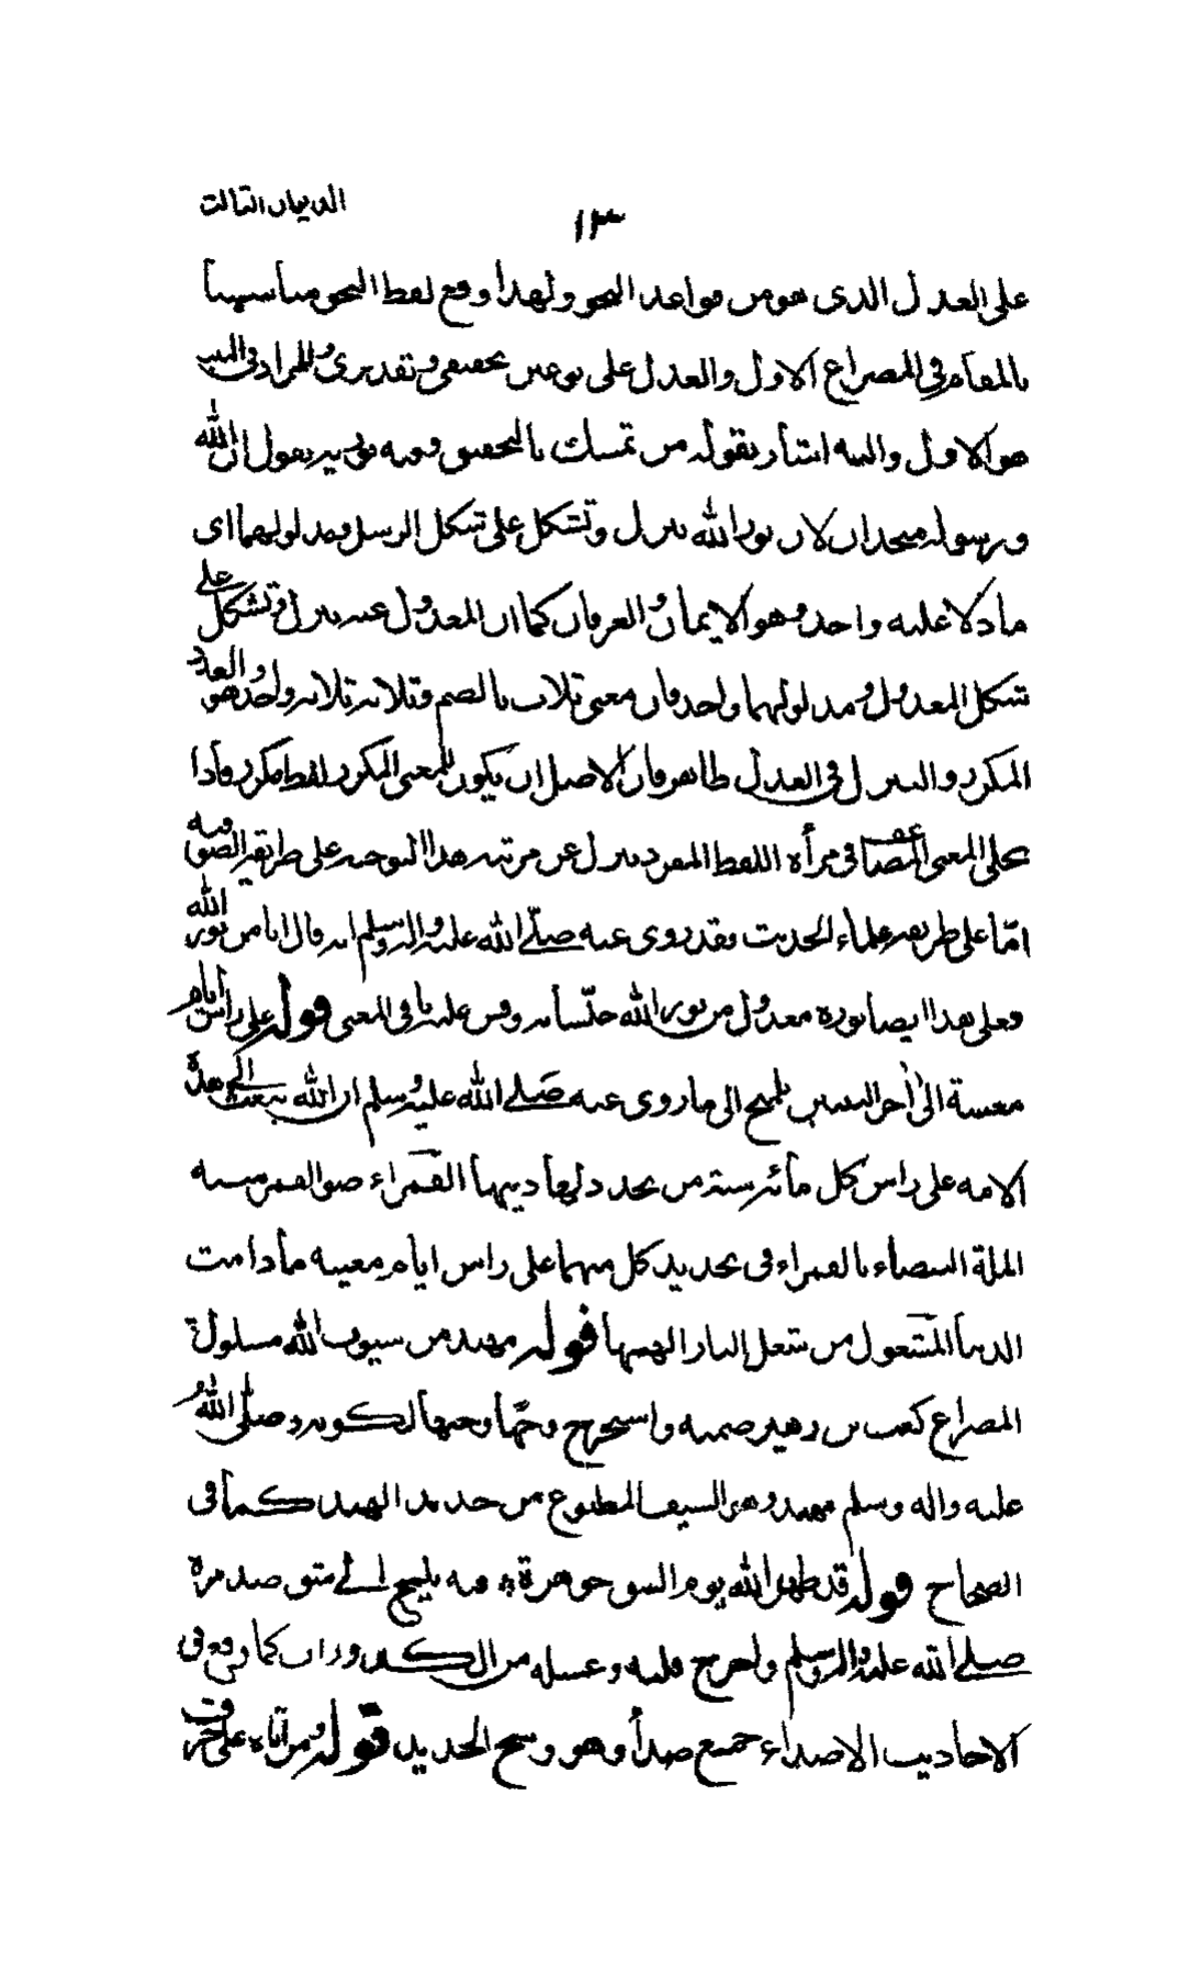 الديوان الثالث
١٣
على العدل الذى هو من قواعد النحو ولهذا وقع لفظ النحو مناسبا
بالمقام فى المصراع الاول والعدل على نوعين تحقيقى وتقديرى والمراد فى البيت
هو الاول واليه اشار بقوله من تمسك بالتحقيق وفيه يقول ان الله
ورسوله متحدان لان نور الله ينزل وتشكل على شكل الرسل ومدلولهما اى
ما دلا عليه واحد وهو الايمان والعرفان كما ان المعدول عنه ينزل وتشكل على
شكل المعدول ومدلولهما واحد فان معنى ثلاث بالضم وثلاثة ثلاثة واحد وهو العدد
المكرر والتنزل فى العدل ظاهر فان الاصل ان يكون للمعنى المكرر لفظ مكرر فاذا
تجلى المعنى فى مرأة اللفظ المفرد ينزل عن مرتبته هذا التوجيه على طريقة الصوفيه
امّا على طريقة علماء الحديث فقد روى عنه صلّى الله عليه واله وسلم انه قال انا من نور الله
وعلى هذا ايضا نوره معدول من نور الله جلّ شأنه وقس عليه باقى المعنى قوله على راس ايام
معينة الى اخر البيتين تلميح الى ما روى عنه صلى الله عليه وسلم ان الله يبعث الى هذه
الامه على راس كل مائة سنة من يجدد لها دينها القمراء ضوء القمر
الملة البيضاء بالقمراء فى تجديد كل منهما على راس ايام معينه ما دامت
الدنيا المشعول من شعل النار الهبها قوله مهند من سيوف الله مسلول
المصراع كعب بن زهير ضمنه واستخرج وجها لكونه صلى الله
عليه واله وسلم مهند وهو السيف المطبوع من حديد الهند كما فى
الصحاح قوله قد طهر الله يوم الشق جوهرة فيه تلميح الى شق صدره
صلى الله عليه واله وسلم واخرج قلبه وغسله من الكدورات كما وقع فى
الاحاديث الاصداء جمع صدأ وهو وسخ الحديد قوله من اتاه على حرف